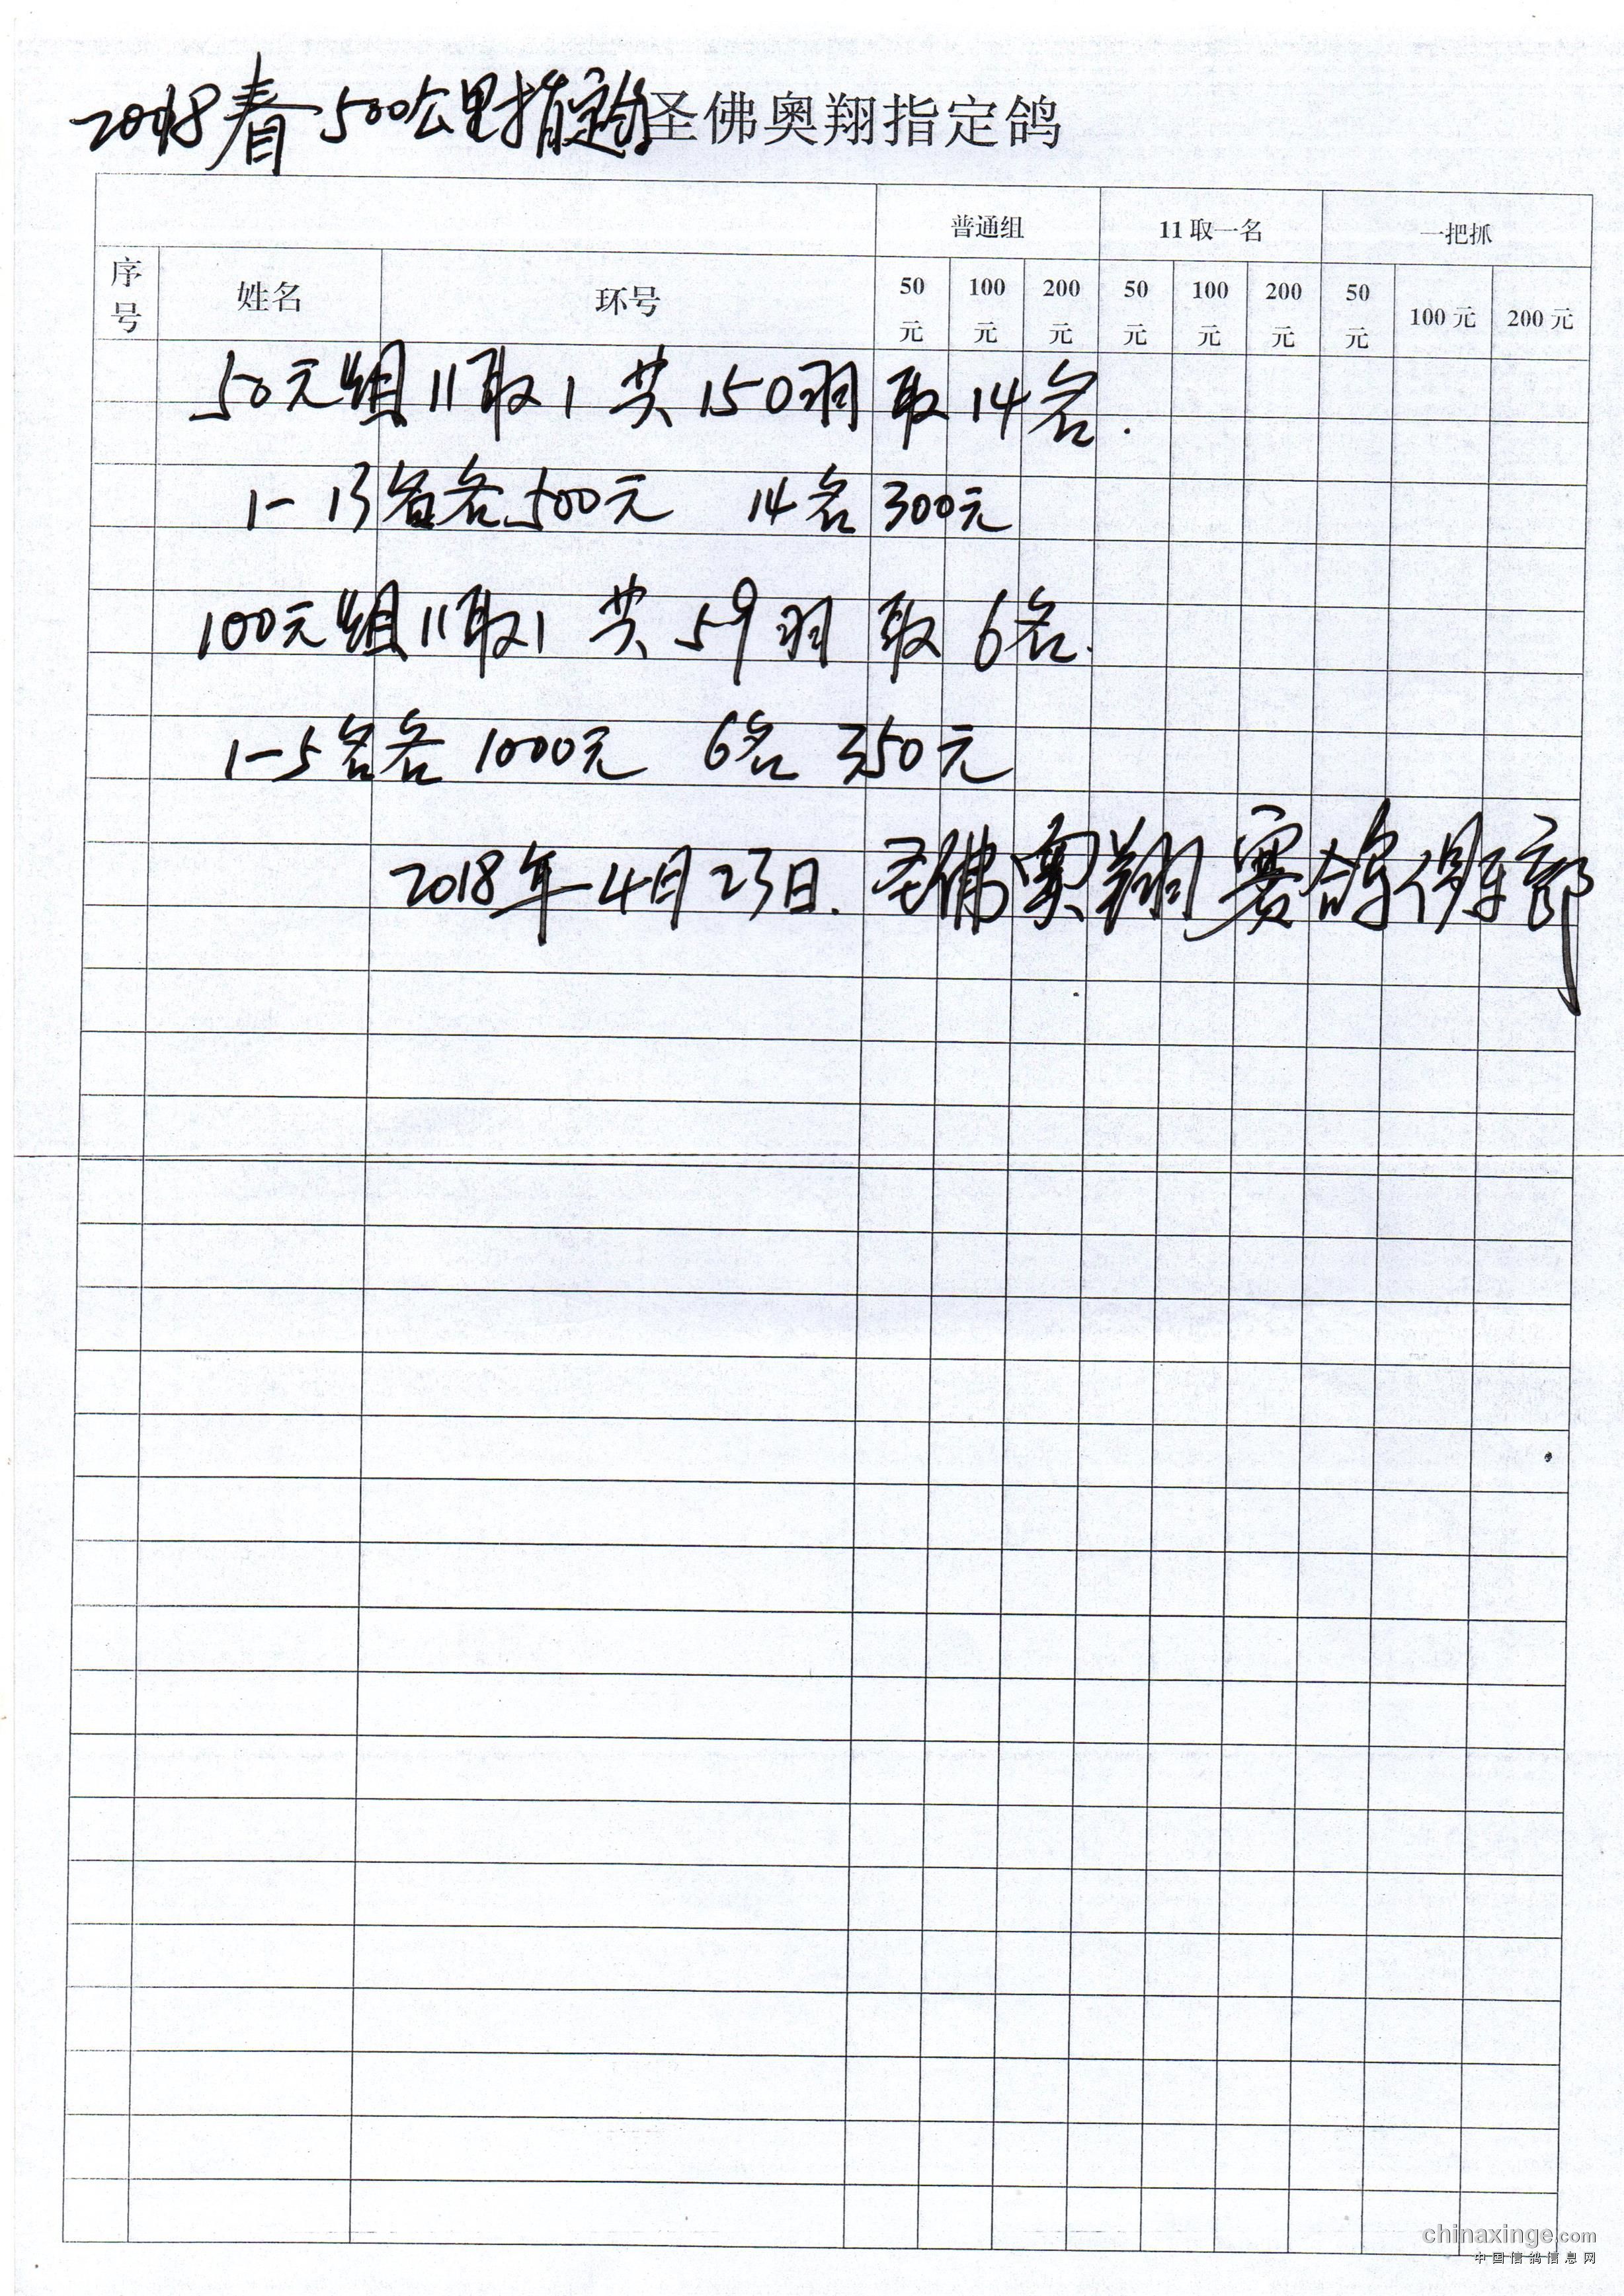 2018春500公里指定鸽圣佛奥翔指定鸽
普通组 11取一名 一把抓
序号 姓名 环号 50元 100元 200元 50元 100元 200元 50元 100元 200元
50元组11取1 共150羽 取14名.
1-13名各500元 14名300元
100元组11取1 共59羽 取6名.
1-5名各1000元 6名350元
2018年4月23日. 圣佛奥翔赛鸽俱乐部
chinaxinge.com
中国信鸽信息网